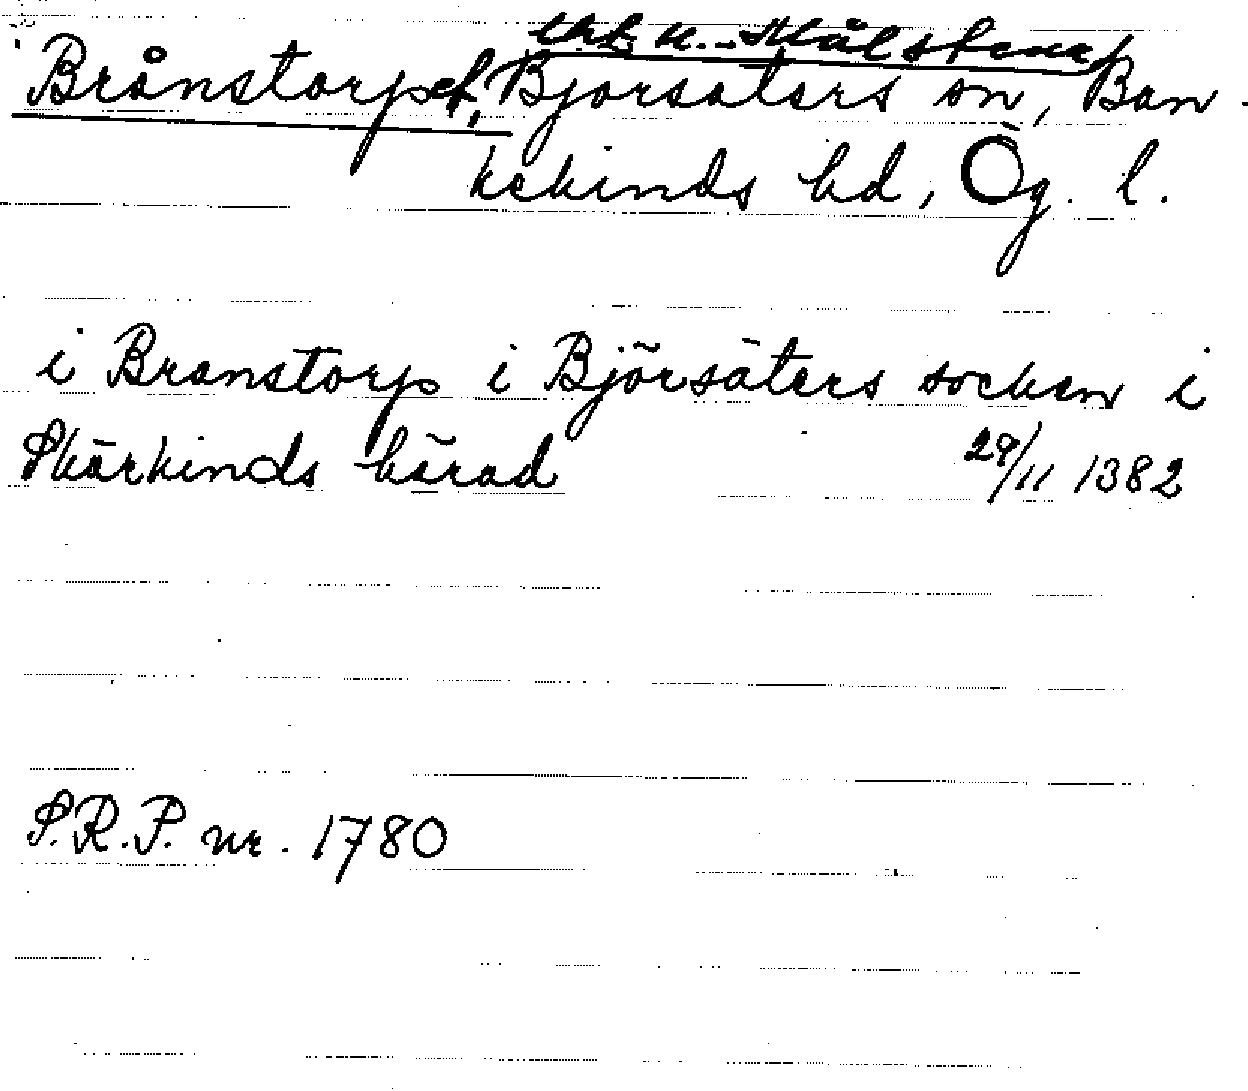 Brånstorp ef, Björsäters sn, Ban-
kekinds hd, Ög. l.
i Branstorp i Björsäters socken i
Skärkinds härad 29/11 1382
S.R.P. nr. 1780